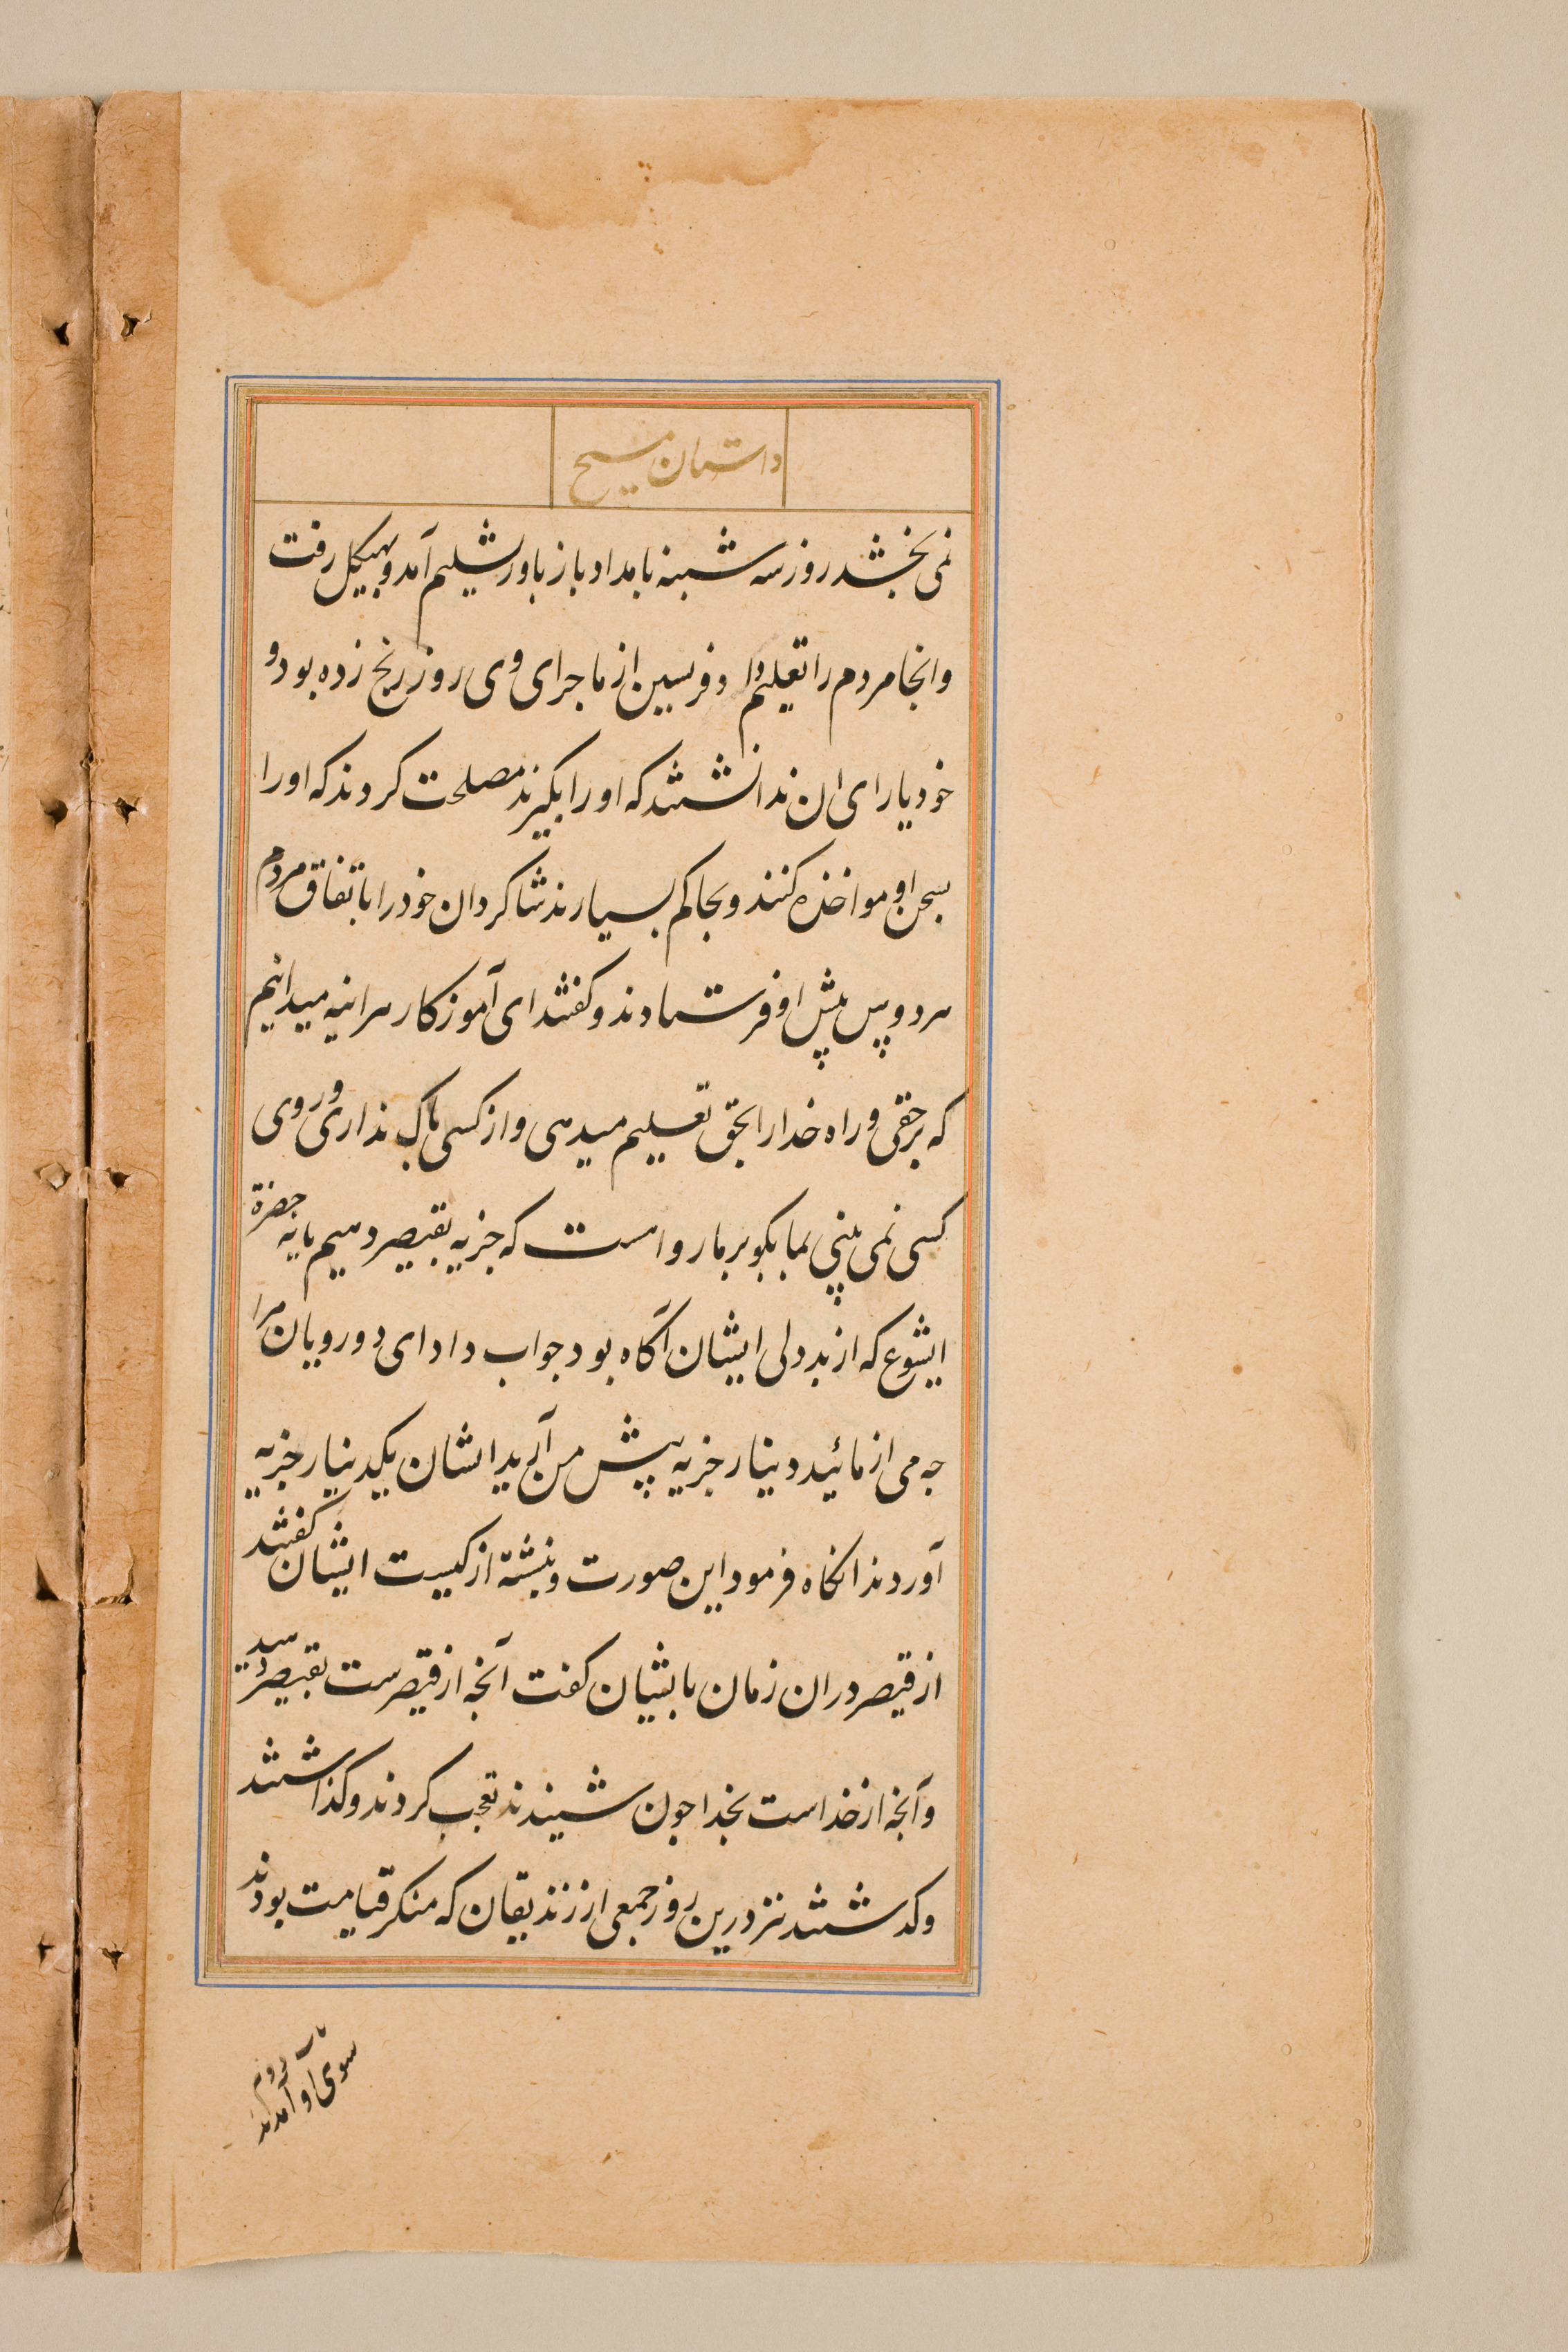 داستان مسیح
نمی بخشد روز سه شنبه بامداد باز باورشلیم آمد و بهیکل رفت
وانجا مردم را تعلیم داد و فریسین از ماجرای وی روز رنج زده بود و
خود یارای ان نداشتند که اورا بکیرند مصلحت کردند که اورا
بسخن او مواخذه کنند و بحاکم بسپارند شاکردان خود را باتفاق مردم
هردوپس پیش او فرستادند و کفتند ای آموزکار هراینه میدانیم
که برحقی و راه خدا را بحق تعلیم میدهی و از کسی باک نداری و روی
کسی نمی بینی بما بکو بر ما رواست که جزیه بقیصر دهیم یا نه حضرة
ایشوع که از بددلی ایشان آکاه بود جواب داد ای دورویان مرا
چه می ازمائید دینار جزیه پیش من آرید ایشان یکدینار جزیه
آوردند انکاه فرمود این صورت و نبشته از کیست ایشان کفتند
از قیصر دران زمان بایشیان کفت آنچه از قیصرست بقیصر دهید
و آنچه از خداست بخدا چون شنیدند تعجب کردند و کذاشتند
و کدشتند نیز درین روز جمعی از زندیقان که منکر قیامت بودند
سوی او آمدند